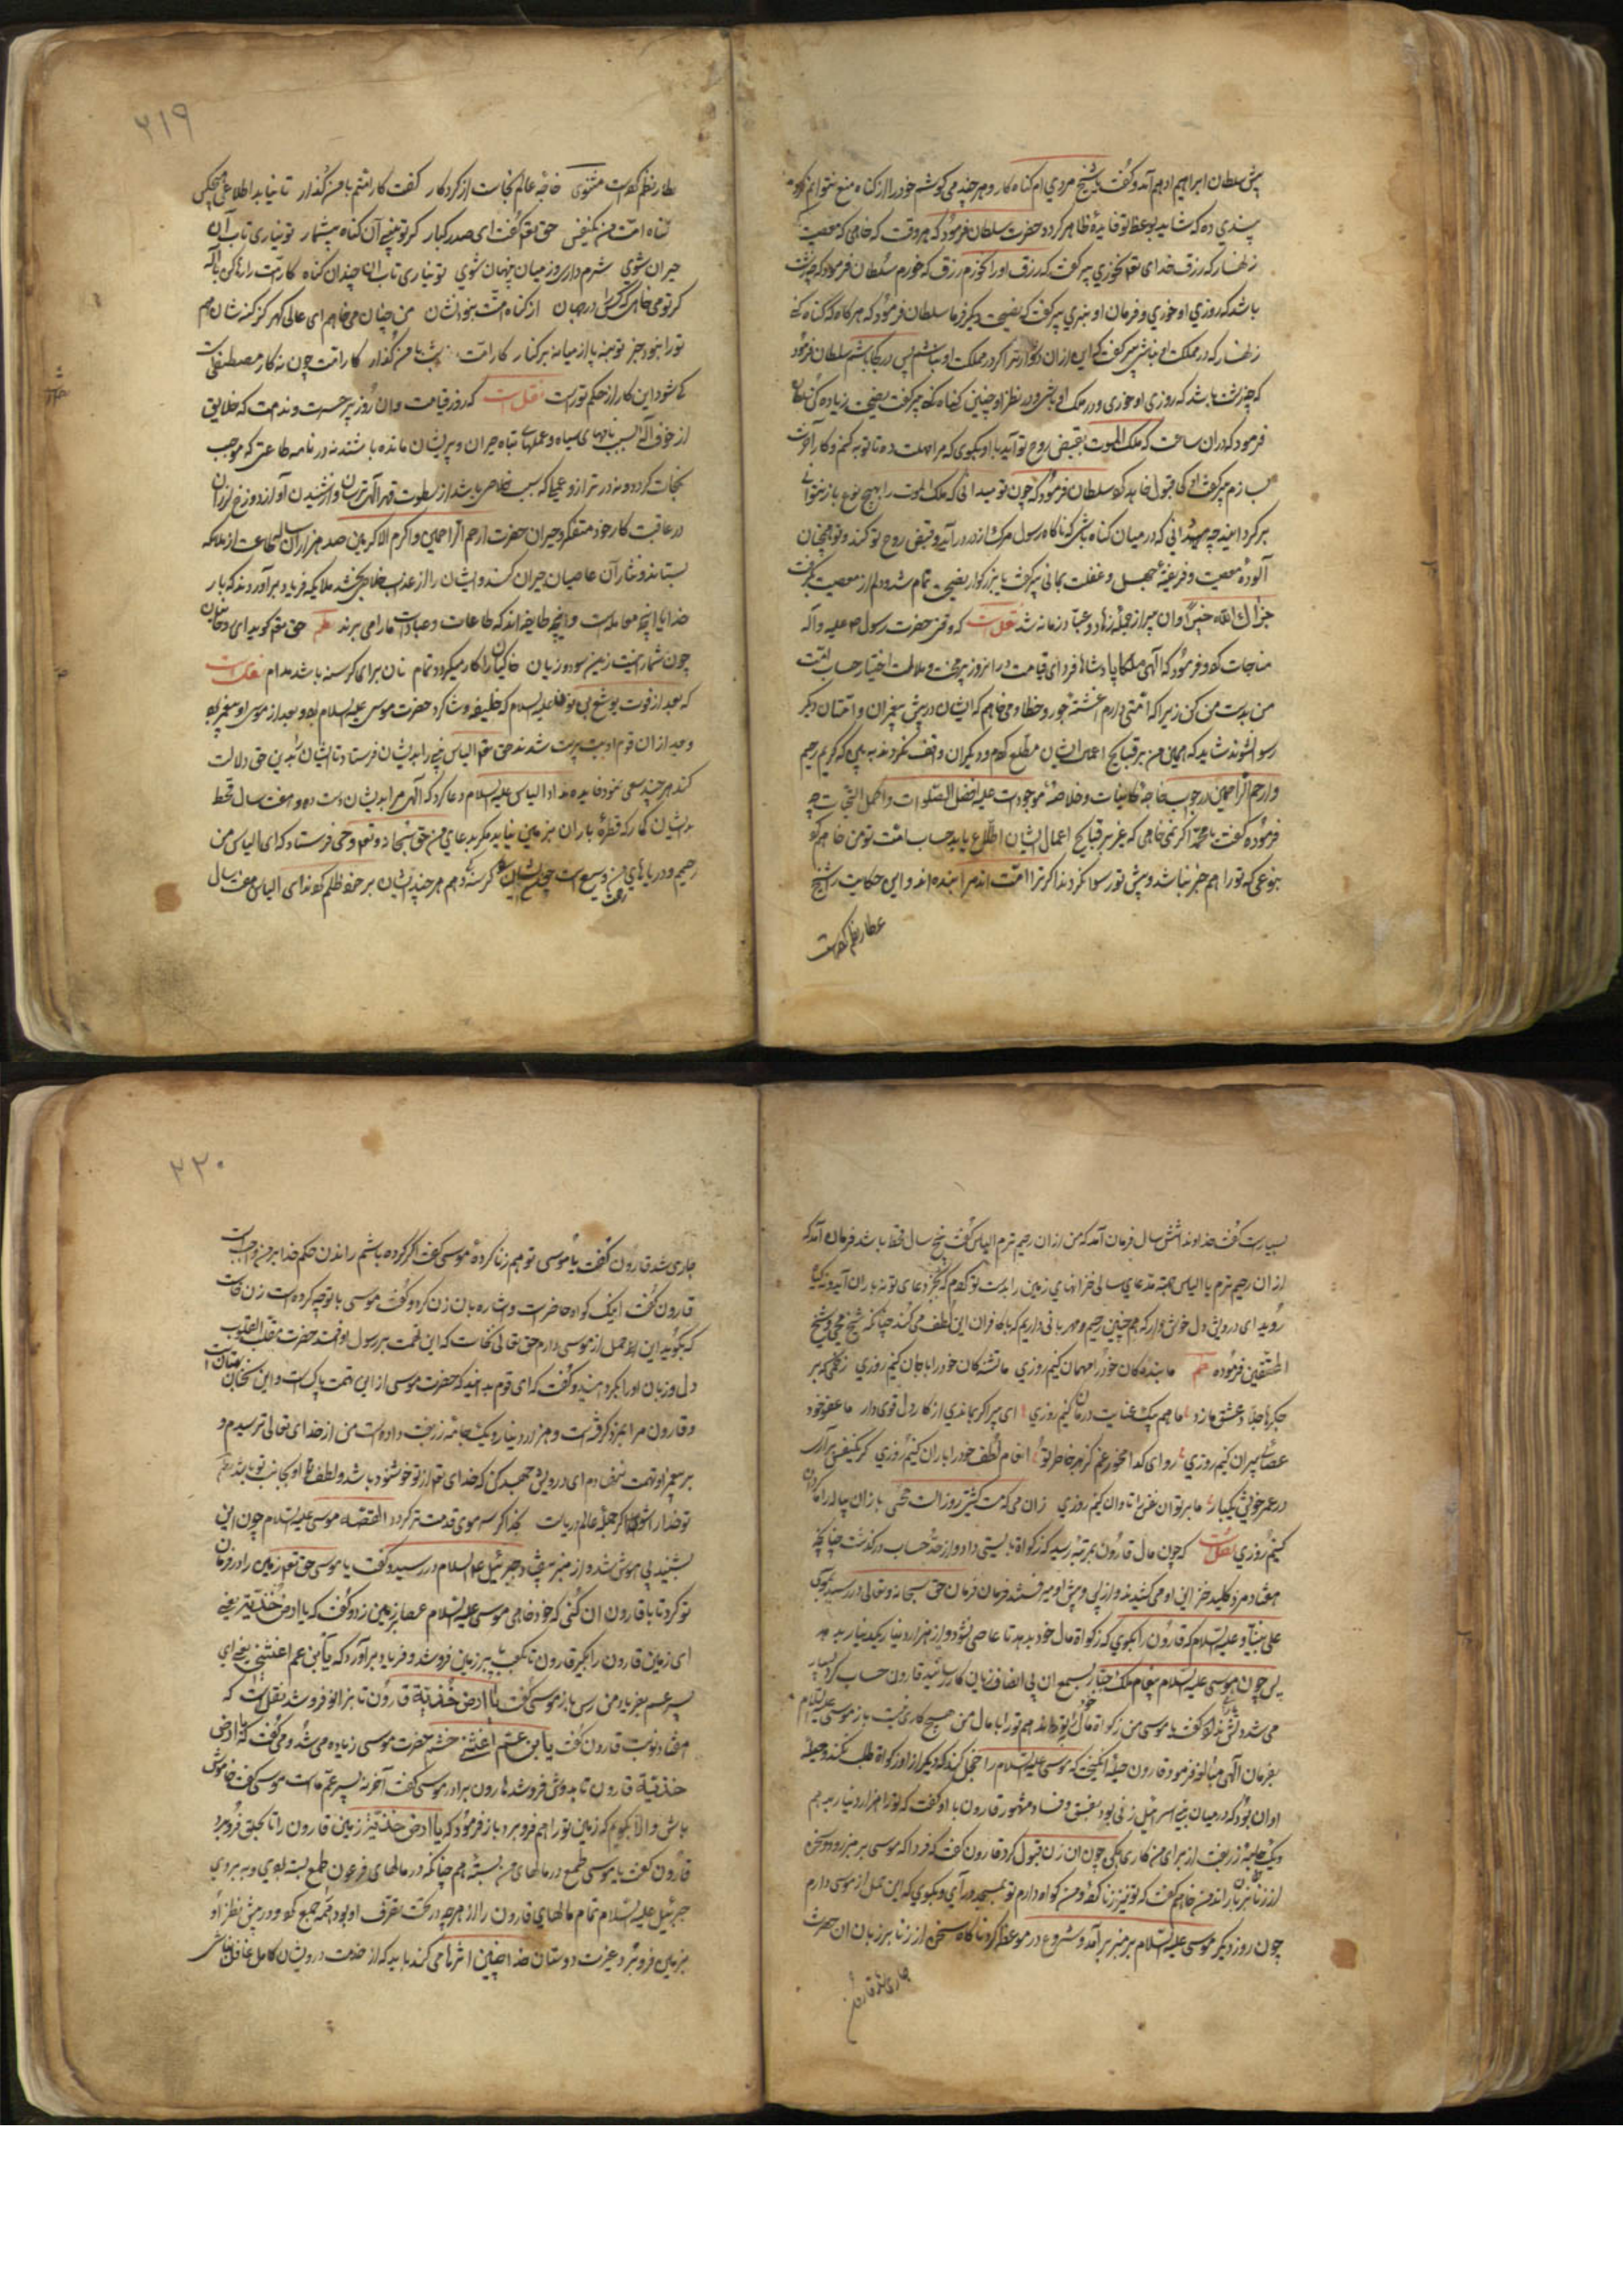 پیش سلطان ابراهیم ادهم آمد و گفت یا شیخ مردی ام گناه کار و هر چند می کوشم خود را از گناه منع نتوانم کرد
پندی ده که شاید بوعظ تو فایدهٔ ظاهر کردد حضرت سلطان فرمود که هر وقت که خواهی که معصیت
زنهار که رزق خدای تعالی نخوری پیر گفت که رزق او را نخورم رزق که خورم سلطان فرمود که چه زشت
باشد که روزی او خوری و فرمان او نبری پیر گفت که نصیحت دیگر فرما سلطان فرمود که هرگاه که گناه کنی
زنهار که در مملکت او نباشی پیر گفت که این از ان دشوارتر اگر در مملکت او نباشم پس در کجا باشم سلطان فرمود
که چه زشت باشد که روزی او خوری و در ملک او باشی و در نظر او چنین گناه کنی پیر گفت نصیحت زیاده کن سلطان
فرمود که در ان ساعت که ملک الموت بقبض روح تو آید با او بکوی که مرا مهلت ده تا توبه کنم و کار آخرت
بسازم پیر گفت او کی قبول خواهد کرد سلطان فرمود که چون تو میدانی که ملک الموت را بهیچ نوع باز نتوانی
برگردانید چه میدانی که در میان گناه باشی که ناگاه رسول مرگ از در درآید و قبض روح تو کند و تو همچنان
آلودهٔ معصیت و فریفتهٔ جهل و غفلت بمانی پیر گفت یا بزرگوار نصیحت تمام شد و دلم از معصیت بگرفت
جزاک الله خیرا و ان پیر از جملهٔ زهاد و عباد زمانه شد نقل است که وقتی حضرت رسول صلی علیه و آله
مناجات کرد و فرمود که الهی ملکا پادشاها فردای قیامت در ان روز پر محنت و ملامت اختیار حساب امت
من بدست من کن زیرا که امتی دارم اغشته جور و خطا و می خواهم که ایشان در پیش پیغمبران و امتان دیگر
رسوا نشوند شاید که همین من بر قبایح اعمال ایشان مطلع کردم و دیگران واقف نگردند بدیهی که کریم رحیم
و ارحم الراحمین در جواب خواجه کاینات و خلاصهٔ موجودات علیه افضل الصلوات و اکمل التحیات چه
فرموده گفت یا محمد اگر نمی خواهی که غیر بر قبایح اعمال ایشان اطلاع یابد حساب امت تو من خواهم کرد
بنوعی که تو را هم خبر نباشد و پیش تو رسوا نگردند اگر ترا امت اند مرا بنده اند و این حکایت را شیخ
عطار نظم کرده است
۲۱۹
عطار نظم کرده است مثنوی خواجه عالم نجات از کردکار گفت کار امتم با من گذار تا نیابد اطلاعی هیچکس
گناه امت من یکنفس حق تعالی گفت ای صدر کبار گر تو بینی آن گناه بیشمار تو نیاری تاب آن
حیران شوی شرم داری وز میان پنهان شوی تو نیاری تاب ان چندان گناه کار امت را رها کن با اله
گر تو می خواهی که کس را در جهان از گناه امتت نبود نشان من چنان می خواهم ای عالی گهر کز گنه شان هم
تو را نبود خبر تو منه پا از میانه بر کنار کار امت با من گذار کار امت چون نه کار مصطفی است
کی شود این کار از حکم تو راست نقل است که روز قیامت و ان روز پر حسرت و ندامت که خلایق
از خوف الهی بسبب نامهای سیاه و عملهای تباه حیران و پریشان مانده باشند نه در نامه طاعتی که موجب
نجات گردد و نه در ترازو عملی که سبب خلاص باشد از سطوت قهر الهی ترسان و از شنیدن آواز دوزخ لرزان
در عاقبت کار خود متفکر و حیران حضرت ارحم الراحمین و اکرم الاکرمین صد هزاران ساله طاعت از ملائکه
بستاند و نثار آن عاصیان حیران کند و ایشان را از عذاب خلاصی بخشد ملایکه فریاد برآورند که بار
خدایا این چه معامله است و این چه طایفه اند که طاعات و عبادات ما را می برند نظم حق تعالی گوید ای روحانیان
چون شما را نیست زین سود و زیان خاکیان را کار میگردد تمام نان برای گرسنه باشد مدام نقل است
که بعد از فوت یوشع بن نون علیه السلام که خلیفه و شاگرد حضرت موسی علیه السلام بود و بعد از موسی او پیغمبر بود
و بعد از ان قوم او بت پرست شدند حق تعالی الیاس نبی را بدیشان فرستاد تا ایشان را بدین حق دلالت
کند هر چند سعی نمود فایده نداد الیاس علیه السلام دعا کرد که الهی مرا بدیشان دست ده و هفت سال قحط
بدیشان گمار که قطرهٔ باران بر زمین نیاید مگر بدعای من حق سبحانه و تعالی وحی فرستاد که ای الیاس من
رحیم و دریاهای من وسیع است چون ایشان گرسنه و هم هر چند ایشان بر خود ظلم کردند ای الیاس هفت سال
بسیار است گفت خداوندا شش سال فرمان آمد که من از ان رحیم ترم الیاس گفت پنج سال قحط باشد فرمان آمد که
از ان رحیم ترم یا الیاس سه سال خزانهای زمین را بدست تو کردم که بجز دعای تو نه باران آید و نه گیاه
روید ای درویش دل خوش دار که همچنین رحیم و مهربانی داریم که با کافران این لطف می کند چنانکه شیخ محیی و شیخ
المحققین فرموده نظم ما بنده کان خود را مهمان کنیم روزی ما تشنه کان خود را باجان کنیم روزی زخمی که بر
جگرها جلاد عشق ما زد ما هم بیک عنایت درمان کنیم روزی ای پیر اگر بماندی از کار دل قوی دار ما عفو خود
عصای پیران کنیم روزی روای گدا مخور غم گر بر خاطر تو انعام لطف خود را باران کنیم روزی گر یکنفس برآری
در عمر خویش یکبار ما بر تو ان نفس را تاوان کنیم روزی زان می که مست گشتی روز الست محیی باز آن پیاله را گردان
کنیم روزی نقل است که چون مال قارون بمرتبهٔ رسید که زکواة بایستی داد و از حد حساب درگذشت چنانچه
هفتاد مرد کلید خزاین او می کشیدند و از پی و پیش او میرفتند فرمان حق سبحانه و تعالی در رسید بموسی
علی نبینا و علیه السلام که قارون را بکوی که زکواة مال خود بدهد تا عاصی نشود و از هزار دینار یکدینار بدهد
پس چون موسی علیه السلام پیغام ملک جبار بسمع ان بی انصاف زیان کار رسانید قارون حساب کرد بسیار
می شد دلش نداد گفت یا موسی من زکواة مال خود بتو ندهم تو را با مال من هیچ کاری نیست باز موسی علیه السلام
بفرمان الهی مبالغه فرمود قارون حیله انگیخت که موسی علیه السلام را خجل کند که دیگر از او زکواة طلب نکند و حیلهٔ
او ان بود که در میان بنی اسرائیل زنی بود بفسق و فساد مشهور قارون با او گفت که تو را هزار دینار بدهم
و یک جامهٔ زربفت از برای من کاری بکنی چون ان زن قبول کرد قارون گفت که فردا که موسی بر منبر رود و سخن
از زنا بر زبان راند من خواهم گفت که تو نیز زنا کرده و من گواه دارم تو بمسجد درآی و بکوی که این حمل از موسی دارم
چون روز دیگر موسی علیه السلام بر منبر برآمد و شروع در موعظه کرد ناگاه سخن از زنا بر زبان ان حضرت
جاری شد قارون
۲۲۰
جاری شد قارون گفت یا موسی تو هم زنا کردهٔ موسی گفت اگر کرده باشم راندن حکم خدا بر من واجب است
قارون گفت اینک گواه حاضر است و اشاره بان زن کرد و گفت موسی با تو چه کرده است زن خواست
که بگوید این حمل از موسی دارم حق تعالی نخواست که این تهمت بر رسول او افتد حضرت مقلب القلوب
دل و زبان او را بگردانید و گفت که ای قوم بدانید که حضرت موسی از این تهمت پاک است و این سخنان بهتان است
و قارون مرا بمزد گرفته است و هزار دینار و یک جامهٔ زربفت داده است من از خدای تعالی ترسیدم و
بر پیغمبر او تهمت ننهادم ای درویش جهد کن که خدای تعالی از تو خوشنود باشد و لطف او بجانب تو باشد نظم
تو خدا را شو اگر جملهٔ عالم دریاست بخدا گر سر موی قدمت تر گردد القصه موسی علیه السلام چون این
بشنید بی هوش شد و از منبر بیفتاد جبرئیل علیه السلام در رسید و گفت یا موسی حق تعالی زمین را در فرمان
تو کرد تا با قارون ان کنی که خود خواهی موسی علیه السلام عصا بر زمین زد و گفت که یا ارض خذیه یعنی
ای زمین قارون را بگیر قارون تا بکعب بر زمین فرو شد و فریاد برآورد که یابن عم اغثنی یعنی ای
پسر عم بفریاد من رس باز موسی گفت یا ارض خذیه قارون تا بزانو فرو شد نقل است که
هفتاد نوبت قارون گفت یابن عم اغثنی خشم حضرت موسی زیاده می شد و می گفت که یا ارض
خذیه قارون تا بدوش فرو شد هارون برادر موسی گفت آخر نه پسر عم ماست موسی گفت خاموش
باش و الا بگویم که زمین تو را هم فرو برد باز فرمود که یا ارض خذیه زمین قارون را تا بحلق فرو برد
قارون گفت یا موسی طمع در مالهای من بستهٔ هم چنانکه در مالهای فرعون طمع بسته بودی و ببردی
جبرئیل علیه السلام تمام مالهای قارون را از هرچه در تحت تصرف او بود همه جمع کرد و در پیش نظر او
بزمین فرو برد عزت دوستان خدا چنین اثرها می کند باید که از خدمت درویشان کامل غافل نباشی